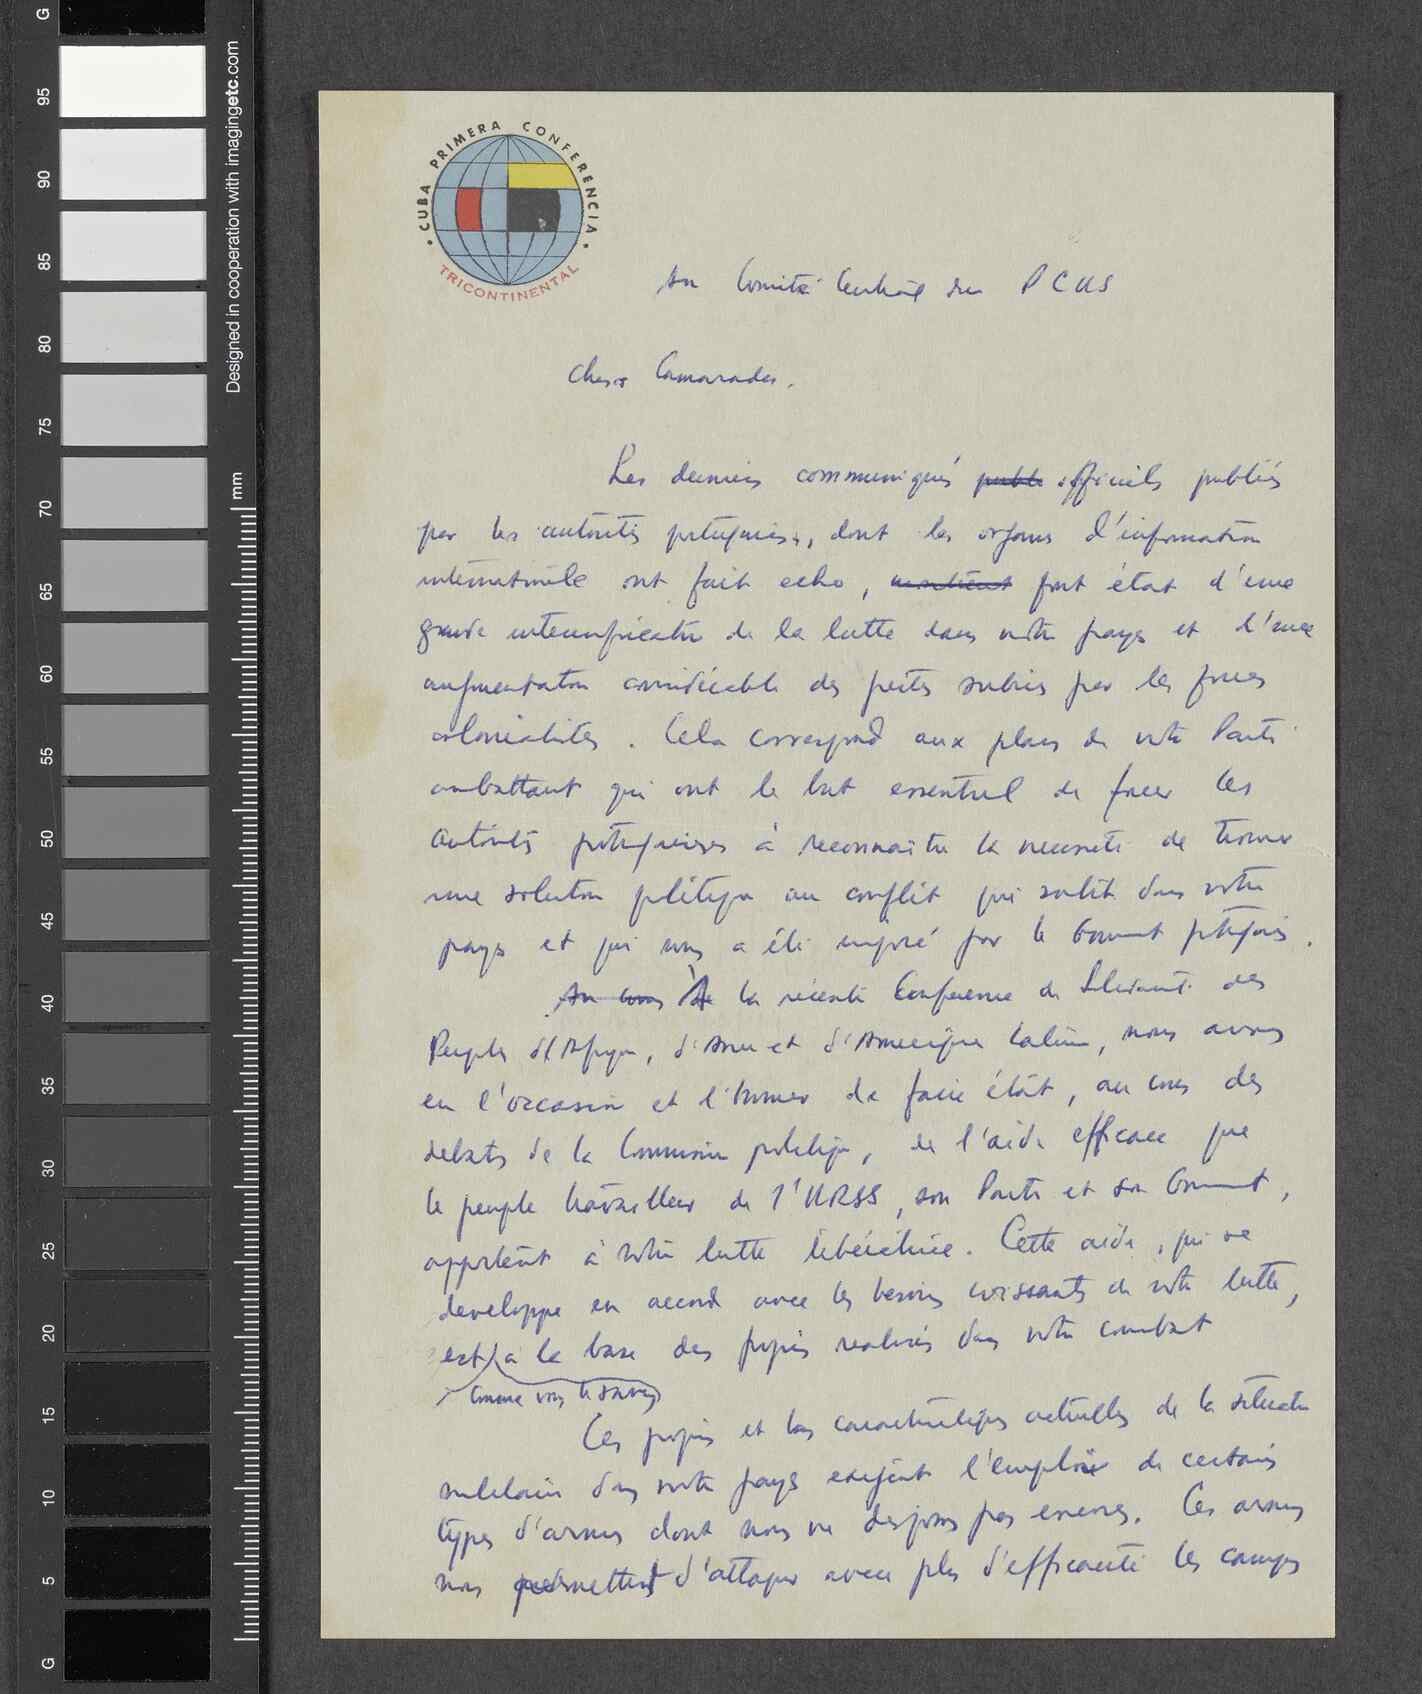 G
95
90
85
80
75
70
65
60
55
50
45
40
35
30
25
20
15
10
5
G
Designed in cooperation with imagingetc.com
mm
• CUBA PRIMERA CONFERENCIA •
TRICONTINENTAL
Au Comité Central du PCUS
Chers Camarades,
Les derniers communiqués publi officiels publiés
par les autorités portugaises, dont les organes d'information
internationale ont fait echo, font état d'une
grande intensification de la lutte dans notre pays et d'une
augmentation considérable des pertes subies par les forces
colonialistes. Cela correspond aux plans de notre Parti
combattant qui ont le but essentiel de forcer les
autorités portugaises à reconnaître la necessité de trouver
une solution politique au conflit qui sévit dans notre
pays et qui nous a été imposé par le Gouvernement portugais.
Au cours A la récente Conférence de Solidarité des
Peuples d'Afrique, d'Asie et d'Amerique Latine, nous avons
eu l'occasion et l'honneur de faire état, au cours des
debats de la Commission politique, de l'aide efficace que
le peuple travailleur de l'URSS, son Parti et son Gouvernement,
apportent à notre lutte libératrice. Cette aide, qui se
developpe en accord avec les besoins croissants de notre lutte,
est à la base des progrès realisés dans notre combat
comme vous le savez
Ces progrès et les caractéristiques actuelles de la situation
militaire dans notre pays exigent l'emploi de certains
types d'armes dont nous ne disposons pas encore. Ces armes
nous permettent d'attaquer avec plus d'efficacité les camps